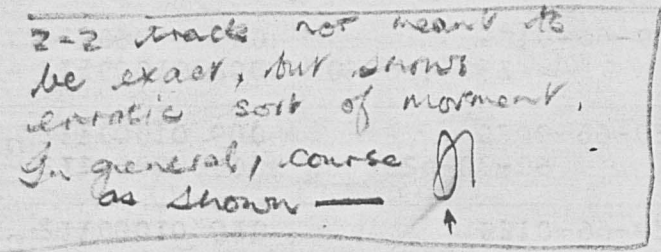 z-z track not meant to
be exact, but shows
erratic sort of movment.
In general, course
as shown —